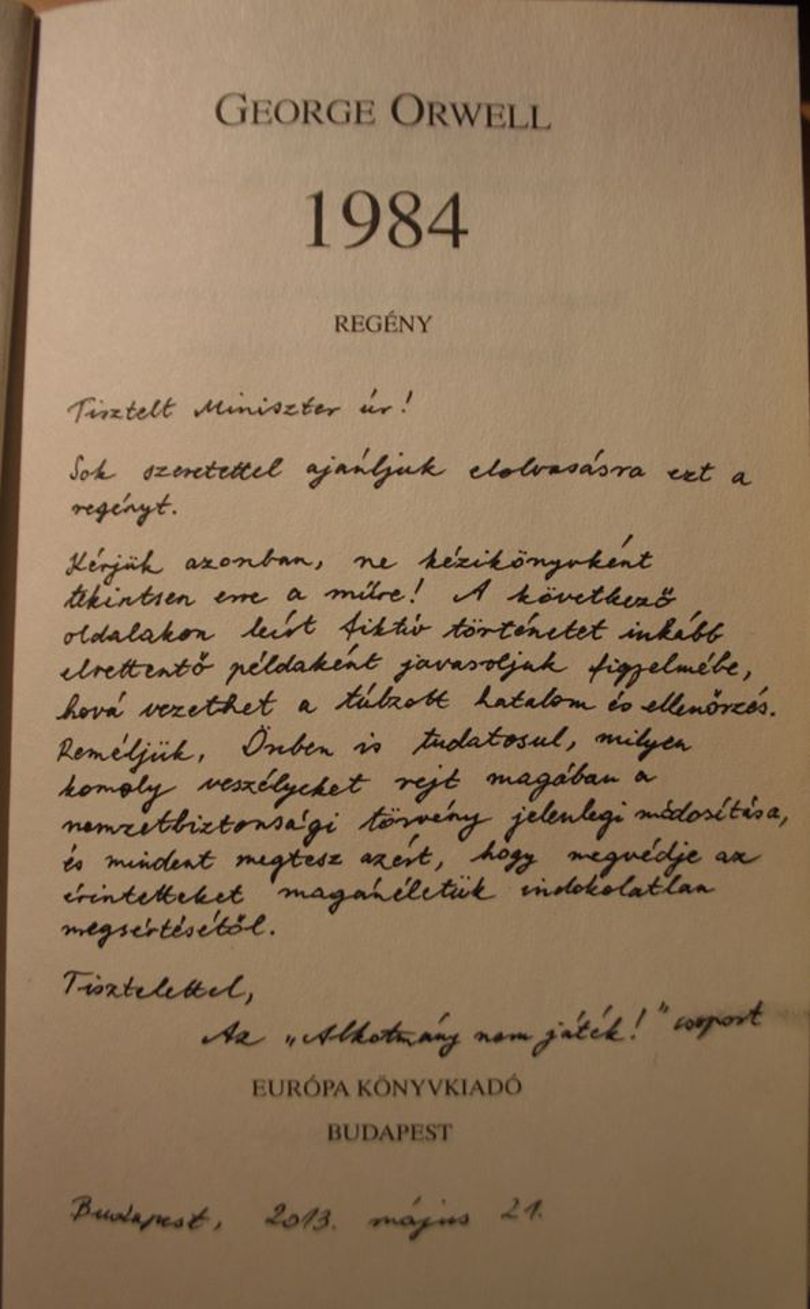 GEORGE ORWELL
1984
REGÉNY
Tisztelt Miniszter úr!
Sok szeretettel ajánljuk elolvasásra ezt a
regényt.
Kérjük azonban, ne kézikönyvként
tekintsen erre a műre! A következő
oldalakon leírt fiktív történetet inkább
elrettentő példaként javasoljuk figyelmébe,
hová vezethet a túlzott hatalom és ellenőrzés.
Reméljük, Önben is tudatosul, milyen
komoly veszélyeket rejt magában a
nemzetbiztonsági törvény jelenlegi módosítása,
és mindent megtesz azért, hogy megvédje az
érintetteket magánéletük indokolatlan
megsértésétől.
Tisztelettel,
Az „Alkotmány nem játék!" csoport
EURÓPA KÖNYVKIADÓ
BUDAPEST
Budapest, 2013. május 21.